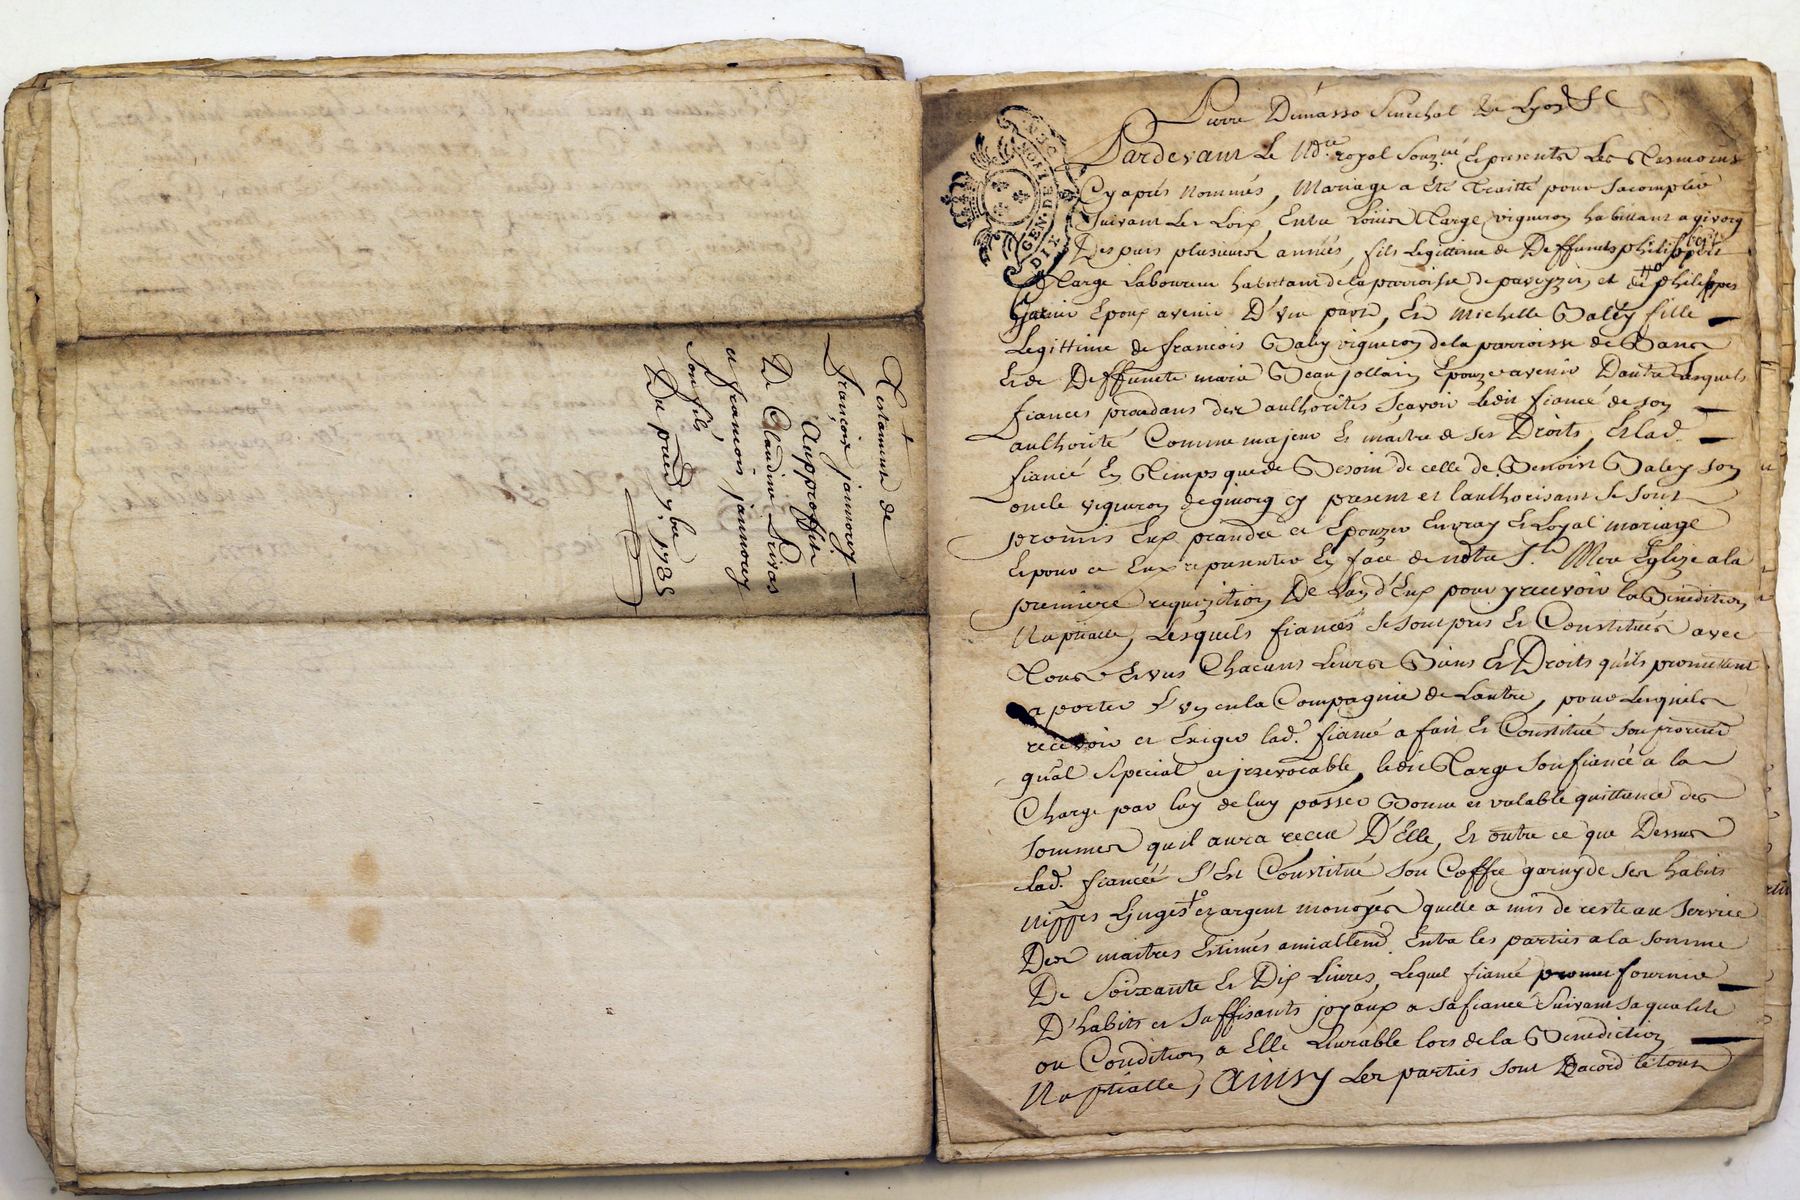 Testament de
françoise jannorey
Auproffit
De Claudine
et francois jannorey
son fils
Du 7bre 1738
GEN. DE LYON
DIX
Pierre Dumasso Senechal de Lyon
Pardevant Le Nore royal Souz.né Et presents Les Tesmoins
Cy aprés Nommés, Mariage a été Traitté pour sacomplir
suivant Les Loix, Entre Louis Targe vigneron habittant a givors
Despuis plusieurs années, fils Legittime de Deffunts philippert
Targe Laboureur habittant de la parroisse de paveyzin, et de philippes
Epoux avenir D'une part, Et Michelle Baley fille
Legittime de francois Baley vigneron de la parroisse de Bans
Et de Deffuncte marie Beaujollain Epouze avenir Dautre Lesquels
fiancés procedans des authorités sçavoir Ledit fiancé de son
authorité Comme majeur Et maitre de ses Droits, Et lad.
fiancé En Temps que de Besoin de celle de Benoist Baley son
oncle vigneron de givors cy present et Lauthorisant se sont
promis Eux prandre et Epouzer En vray Et Loyal mariage
Et pour ce Eux representer En face de notre Ste Mere Eglize a la
premiere requizition De Lun d'Eux pour y recevoir la Benediction
Nuptialle, Lesquels fiancés se sont pris Et Constitués avec
Tous Et vns Chacuns Leurs Biens Et Droits qu'ils promettent
aporter L'vn en la Compagnie de Lautre, pour Lesquels
recevoir et Exiger lad. fiancé a fait Et Constitué son procureur
gnãl special et jrrevocable, ledit Targe son fiancé a la
Charge par luy de luy passer Bonne et valable quittance des
sommes qu'il aura receu D'Elle, Et outre ce que Dessus
lad. fiancée s'Est Constitué son Coffre garny de ses habits
nippes Linges et argent monoyés quelle a mis de reste au service
Des maitres Estimés amiablemt. Entre les parties a la somme
De Soixante Et Dix Livres, Lequel fiancé promet fournir
D'habits et suffisants joyaux a sa fiancé suivant sa qualité
ou Condition a Elle Livrable lors de la Benediction
Nuptialle, Ainsy Les parties sont Dacord le tout